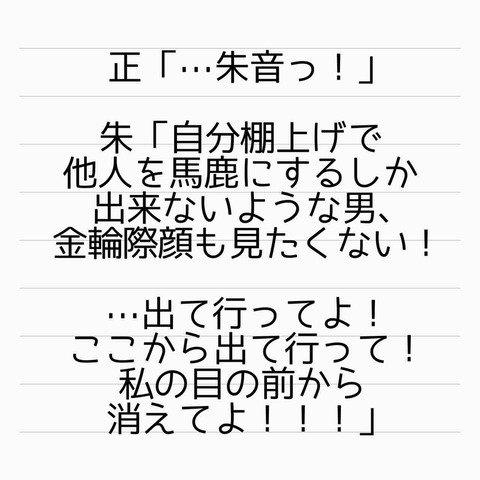 正「…朱音っ！」
朱「自分棚上げで
他人を馬鹿にするしか
出来ないような男、
金輪際顔も見たくない！
…出て行ってよ！
ここから出て行って！
私の目の前から
消えてよ！！！」